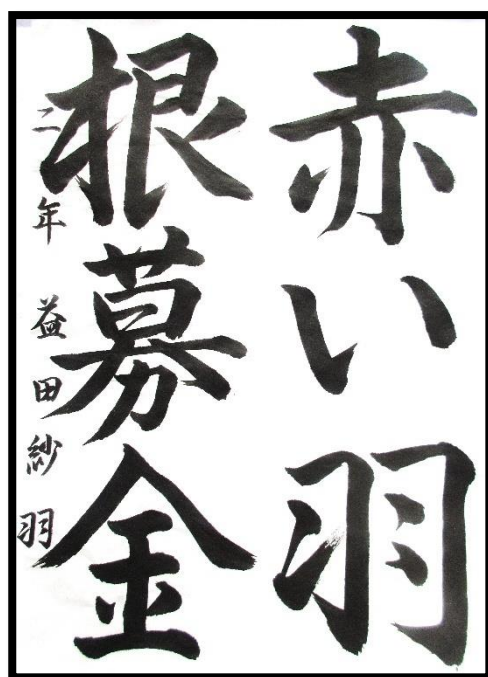 赤い羽
根募金
二年 益田紗羽